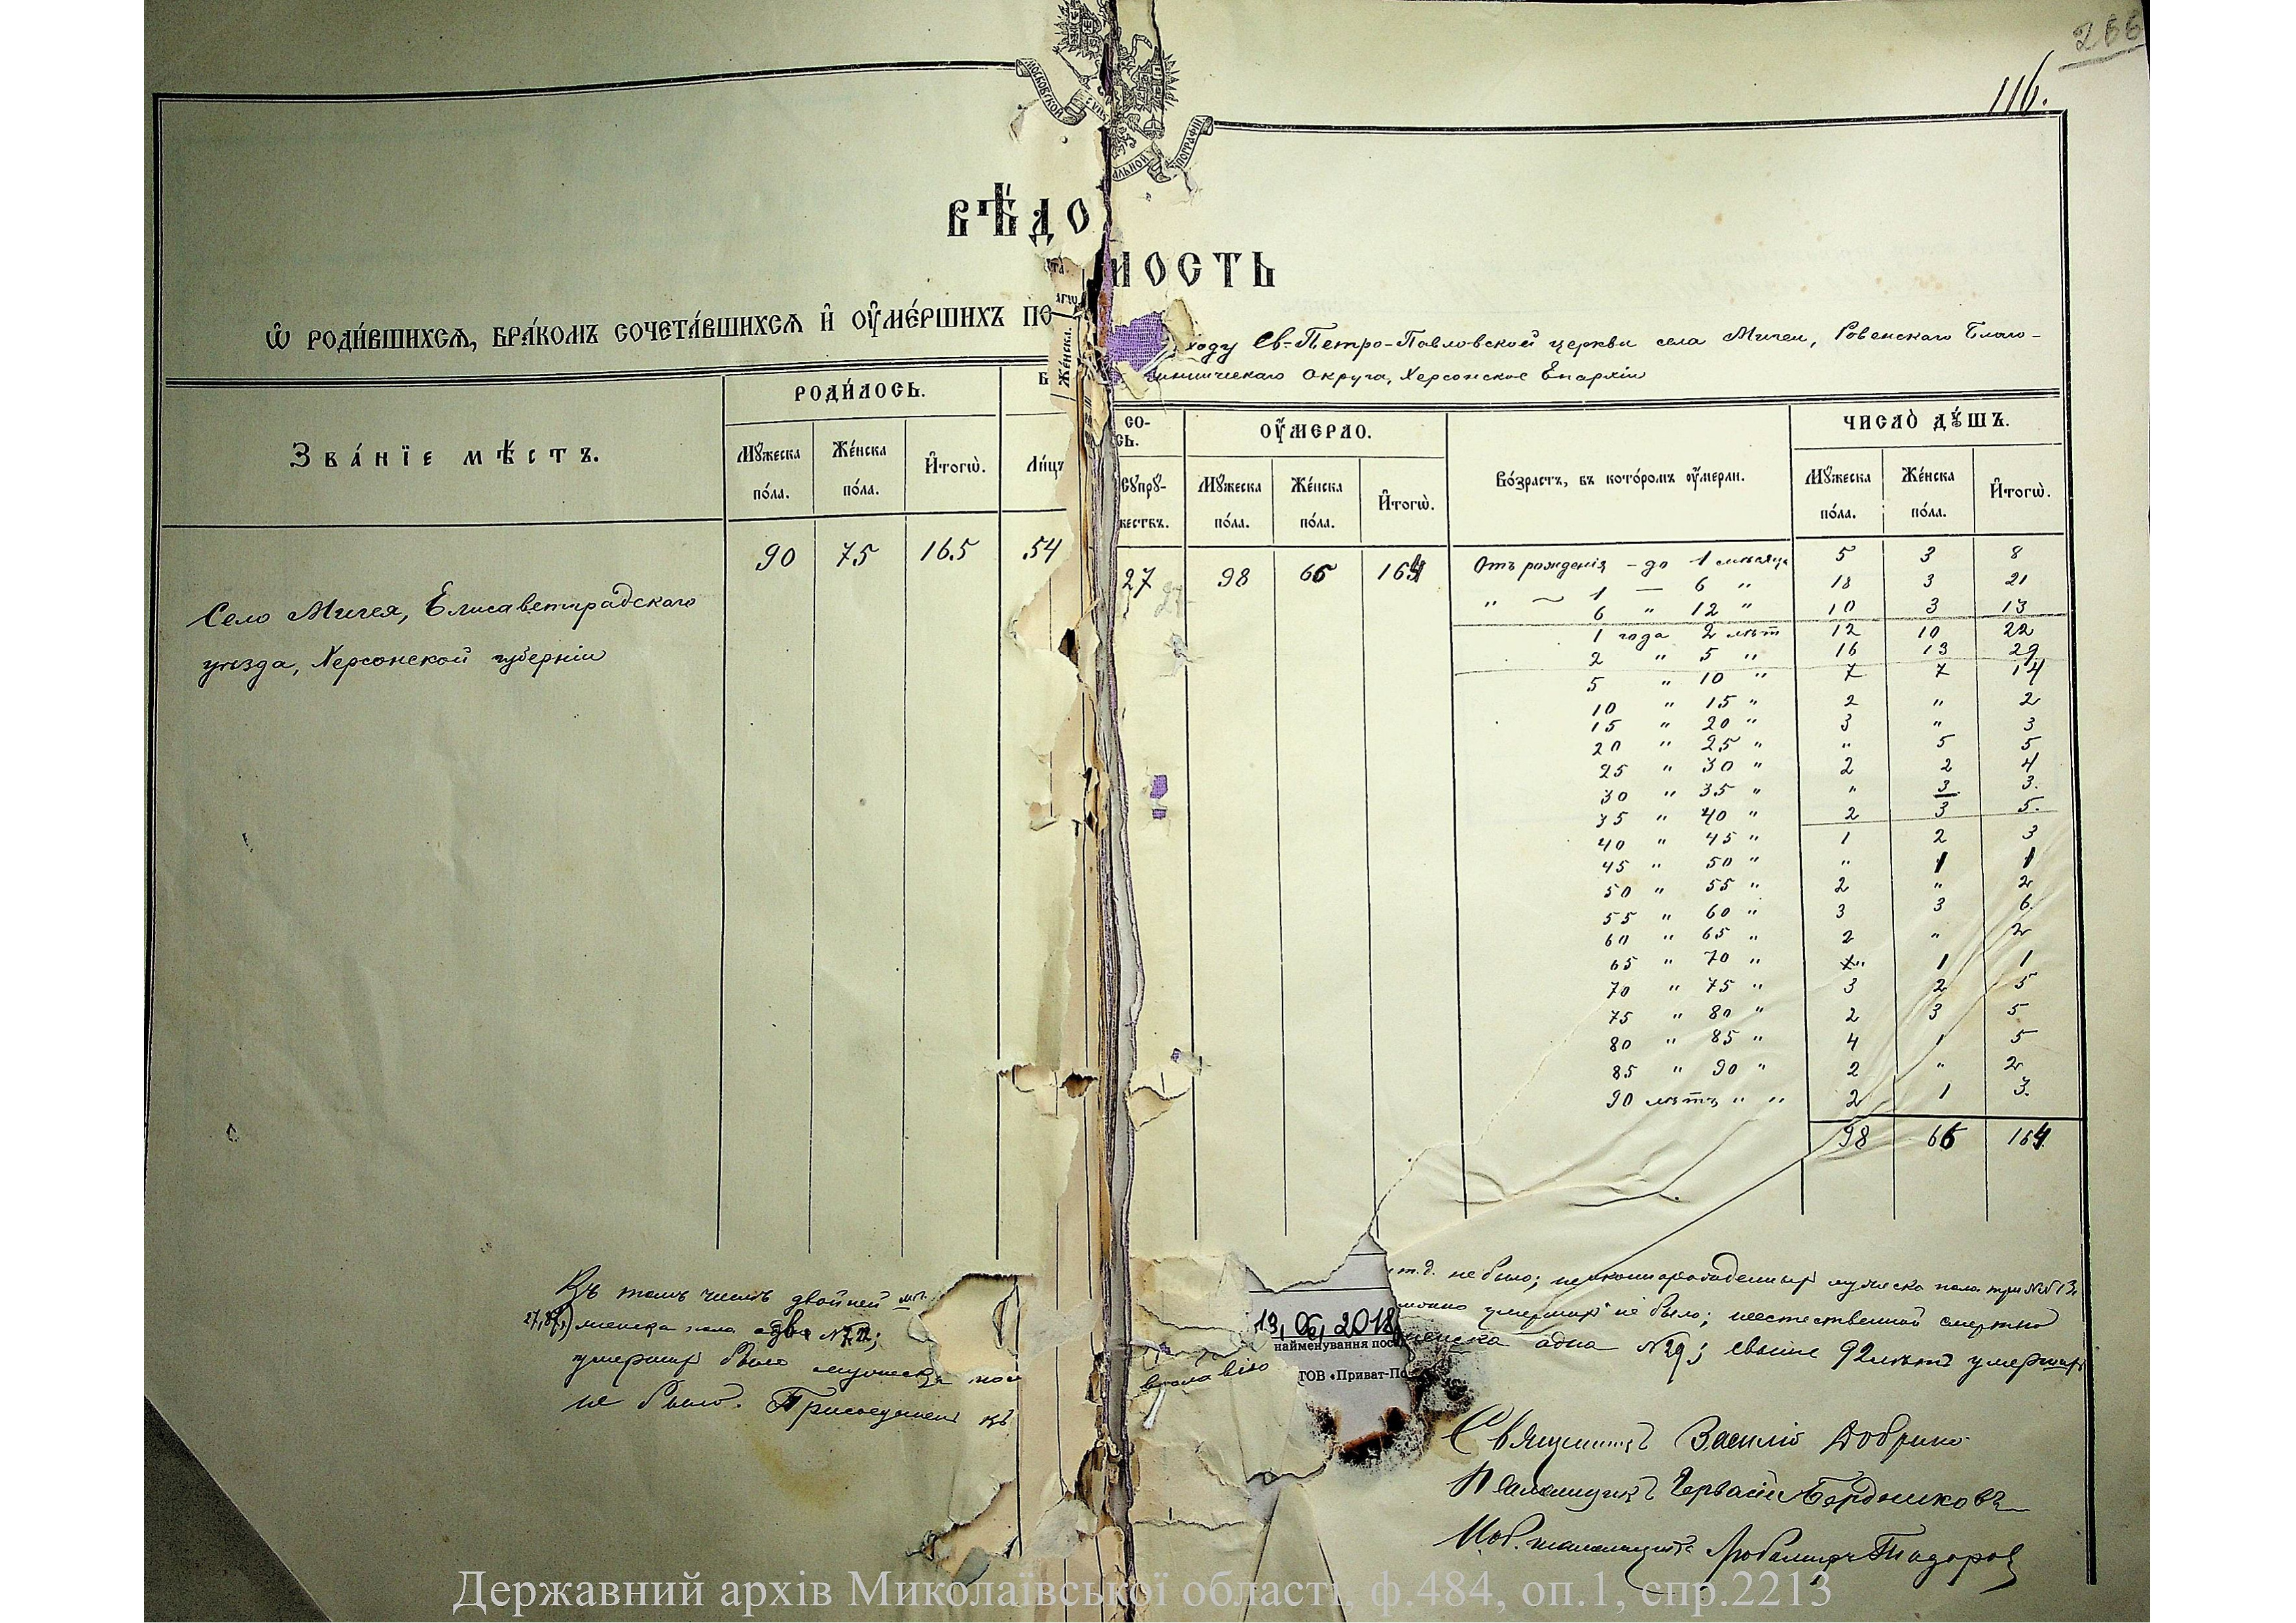 266
116.
МОСКОВСКОЙ
ВѢДО
МОСТЬ
Ѡ РОДИ́ВШИХСѦ, БРА́КОМЪ СОЧЕТА́ВШИХСѦ И҆ ОУ҆МЕ́РШИХЪ ПО
ходу Св-Петро-Павловской церкви села Мигеи, Ровенскаго Благо-
чинническаго Округа, Херсонской Епархіи
ЗВА́НІЕ МѢ́СТЪ.
РОДИ́ЛОСЬ.
Мꙋ́жеска по́ла.
Же́нска по́ла.
И҆тогѡ̀.
Ли́цъ
Же́нска.
СО-
СЬ.
Сꙋпрꙋ-
жествъ.
ОУ҆́МЕРЛО.
Мꙋ́жеска по́ла.
Же́нска по́ла.
И҆тогѡ̀.
Во́зрастъ, въ кото́ромъ оу҆́мерли.
ЧИСЛО̀ ДꙊ́ШЪ.
Мꙋ́жеска по́ла.
Же́нска по́ла.
И҆тогѡ̀.
Село Мигея, Елисаветградскаго
уѣзда, Херсонской губерніи
90 75 165 54 27 98 66 164
Отъ рожденія - до 1 мѣсяца 5 3 8
" 1 — 6 " 18 3 21
6 " 12 " 10 3 13
1 года 2 лѣт 12 10 22
2 " 5 " 16 13 29
5 " 10 " 7 7 14
10 " 15 " 2 " 2
15 " 20 " 3 " 3
20 " 25 " " 5 5
25 " 30 " 2 2 4
30 " 35 " " 3 3.
35 " 40 " 2 3 5.
40 " 45 " 1 2 3
45 " 50 " " 1 1
50 " 55 " 2 " 2
55 " 60 " 3 3 6.
60 " 65 " 2 " 2
65 " 70 " " 1 1
70 " 75 " 3 2 5
75 " 80 " 2 3 5
80 " 85 " 4 1 5
85 " 90 " 2 " 2
90 лѣтъ " " 2 1 3.
98 66 164
Въ томъ числѣ двойней
женска пола
умершихъ было мужеска
не было. Присоединен
и т.д. не было; незаконнорожденных мужеска пола три
умерших не было; неестественной смертію
женска одна №29; свыше 92 лѣтъ умерших
13,06,2018
найменування пос
ТОВ «Приват-По
Священникъ Василій Добрино
Псаломщикъ Гервасій Бердниковъ
Державний архів Миколаївської області, ф.484, оп.1, спр.2213